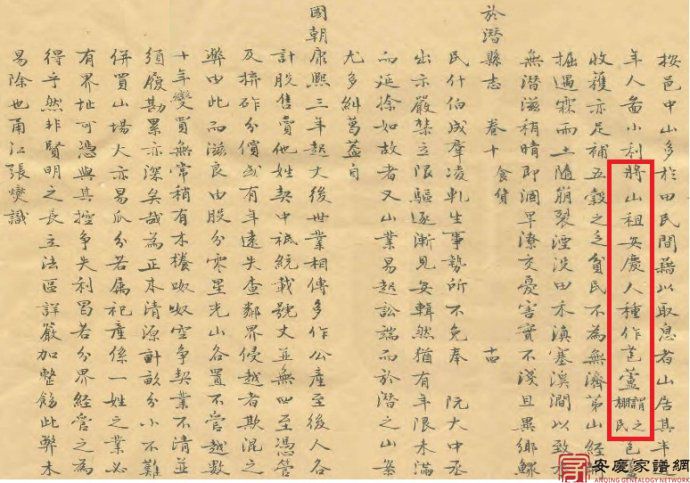 按邑中山多於田民間藉以取息者山居其半
年人啚小利將山祖安慶人種作苞蘆謂之棚民
收獲亦足補五穀之乏貧民不為無濟第山經
掘遇霖雨土隨崩裂湮沒田禾滇塞溪澗以致水
無潛滋稍晴即涸旱潦交憂害實不淺且異鄉鰥
於潛縣志 卷十 食貨 十四
民什伯成羣凌軋生事勢所不免奉 阮大中丞
出示嚴禁立限驅逐漸見安輯然猶有年限未滿
而延捨如故者又山業易起訟端而於潛之山案
尤多糾葛蓋自
國朝康熙三年起丈後世業相傳多作公產至後人各
計股售賣他姓契中祗統載號丈並無四至憑管
及擠砟分償或有年遠失查鄰界侵越者欺混之
弊由此而滋良由股分零星光山各置不管越數
十年變買無常稍有木養呶呶空爭契業不清並
須履勘累亦深矣哉為正本清源計畝分小不難
併買山場大亦易瓜分若屬祀產係一姓之業必
有界址可憑與其控爭失利曷若分界經營之為
得乎然非賢明之長立法區詳嚴加整飭此弊未
易除也甬江張燮識
安慶家譜網
ANQING GENEALOGY NETWORK